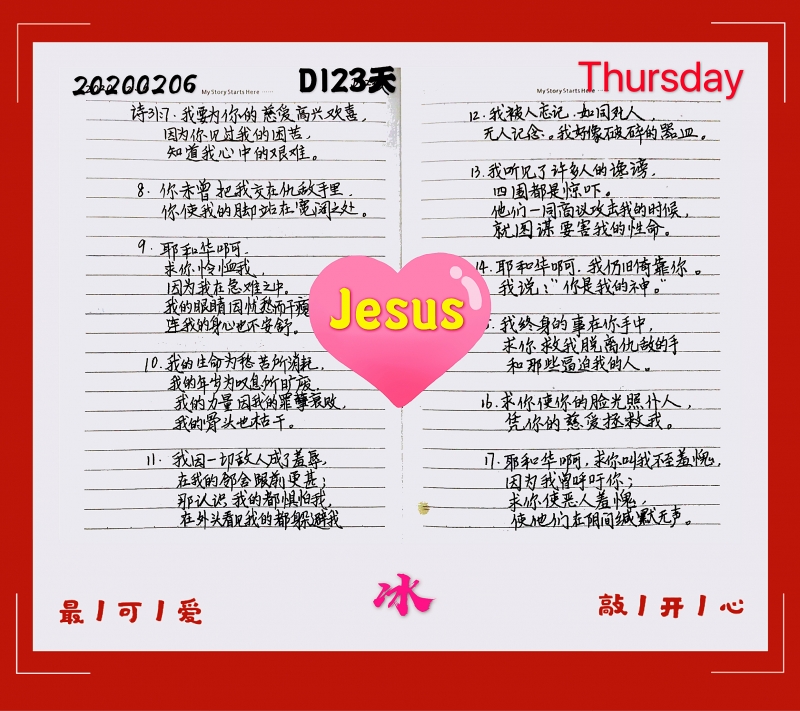 20200206
D123天
Thursday
My Story Starts Here ······
My Story Starts Here
诗31:7. 我要为你的慈爱高兴欢喜,
因为你见过我的困苦,
知道我心中的艰难。
8. 你未曾把我交在仇敌手里,
你使我的脚站在宽阔之处。
9. 耶和华啊可,
求你怜恤我,
因为我在急难之中。
我的眼睛因忧愁而干瘪
连我的身心也不安舒。
10. 我的生命为愁苦所消耗,
我的年岁为叹息所旷废
我的力量因我的罪孽衰败,
我的骨头也枯干。
11. 我因一切敌人成了羞辱,
在我的邻舍跟前更甚;
那认识我的都惧怕我,
在外头看见我的都躲避我
12. 我被人忘记,如同死人,
无人记念。我好像破碎的器皿。
13. 我听见了许多人的谗谤,
四围都是惊吓。
他们一同商议攻击我的时候,
就图谋要害我的性命。
14. 耶和华啊可,我仍旧倚靠你。
我说:“你是我的神。”
我终身的事在你手中,
求你救我脱离仇敌的手
和那些逼迫我的人。
16. 求你使你的脸光照仆人,
凭你的慈爱拯救我。
17. 耶和华啊,求你叫我不至羞愧,
因为我曾呼吁你;
求你使恶人羞愧,
使他们在阴间缄默无声。
Jesus
最丨可丨爱
冰
敲丨开丨心